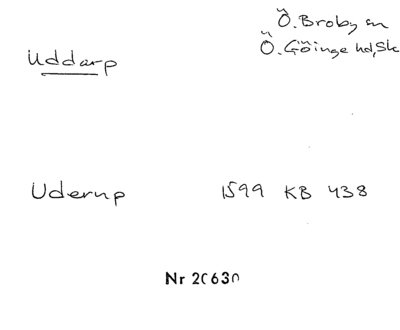 Ö. Broby sn
Uddarp
Ö. Göinge hd, Sk
Uderup 1599 KB 438
Nr 20630